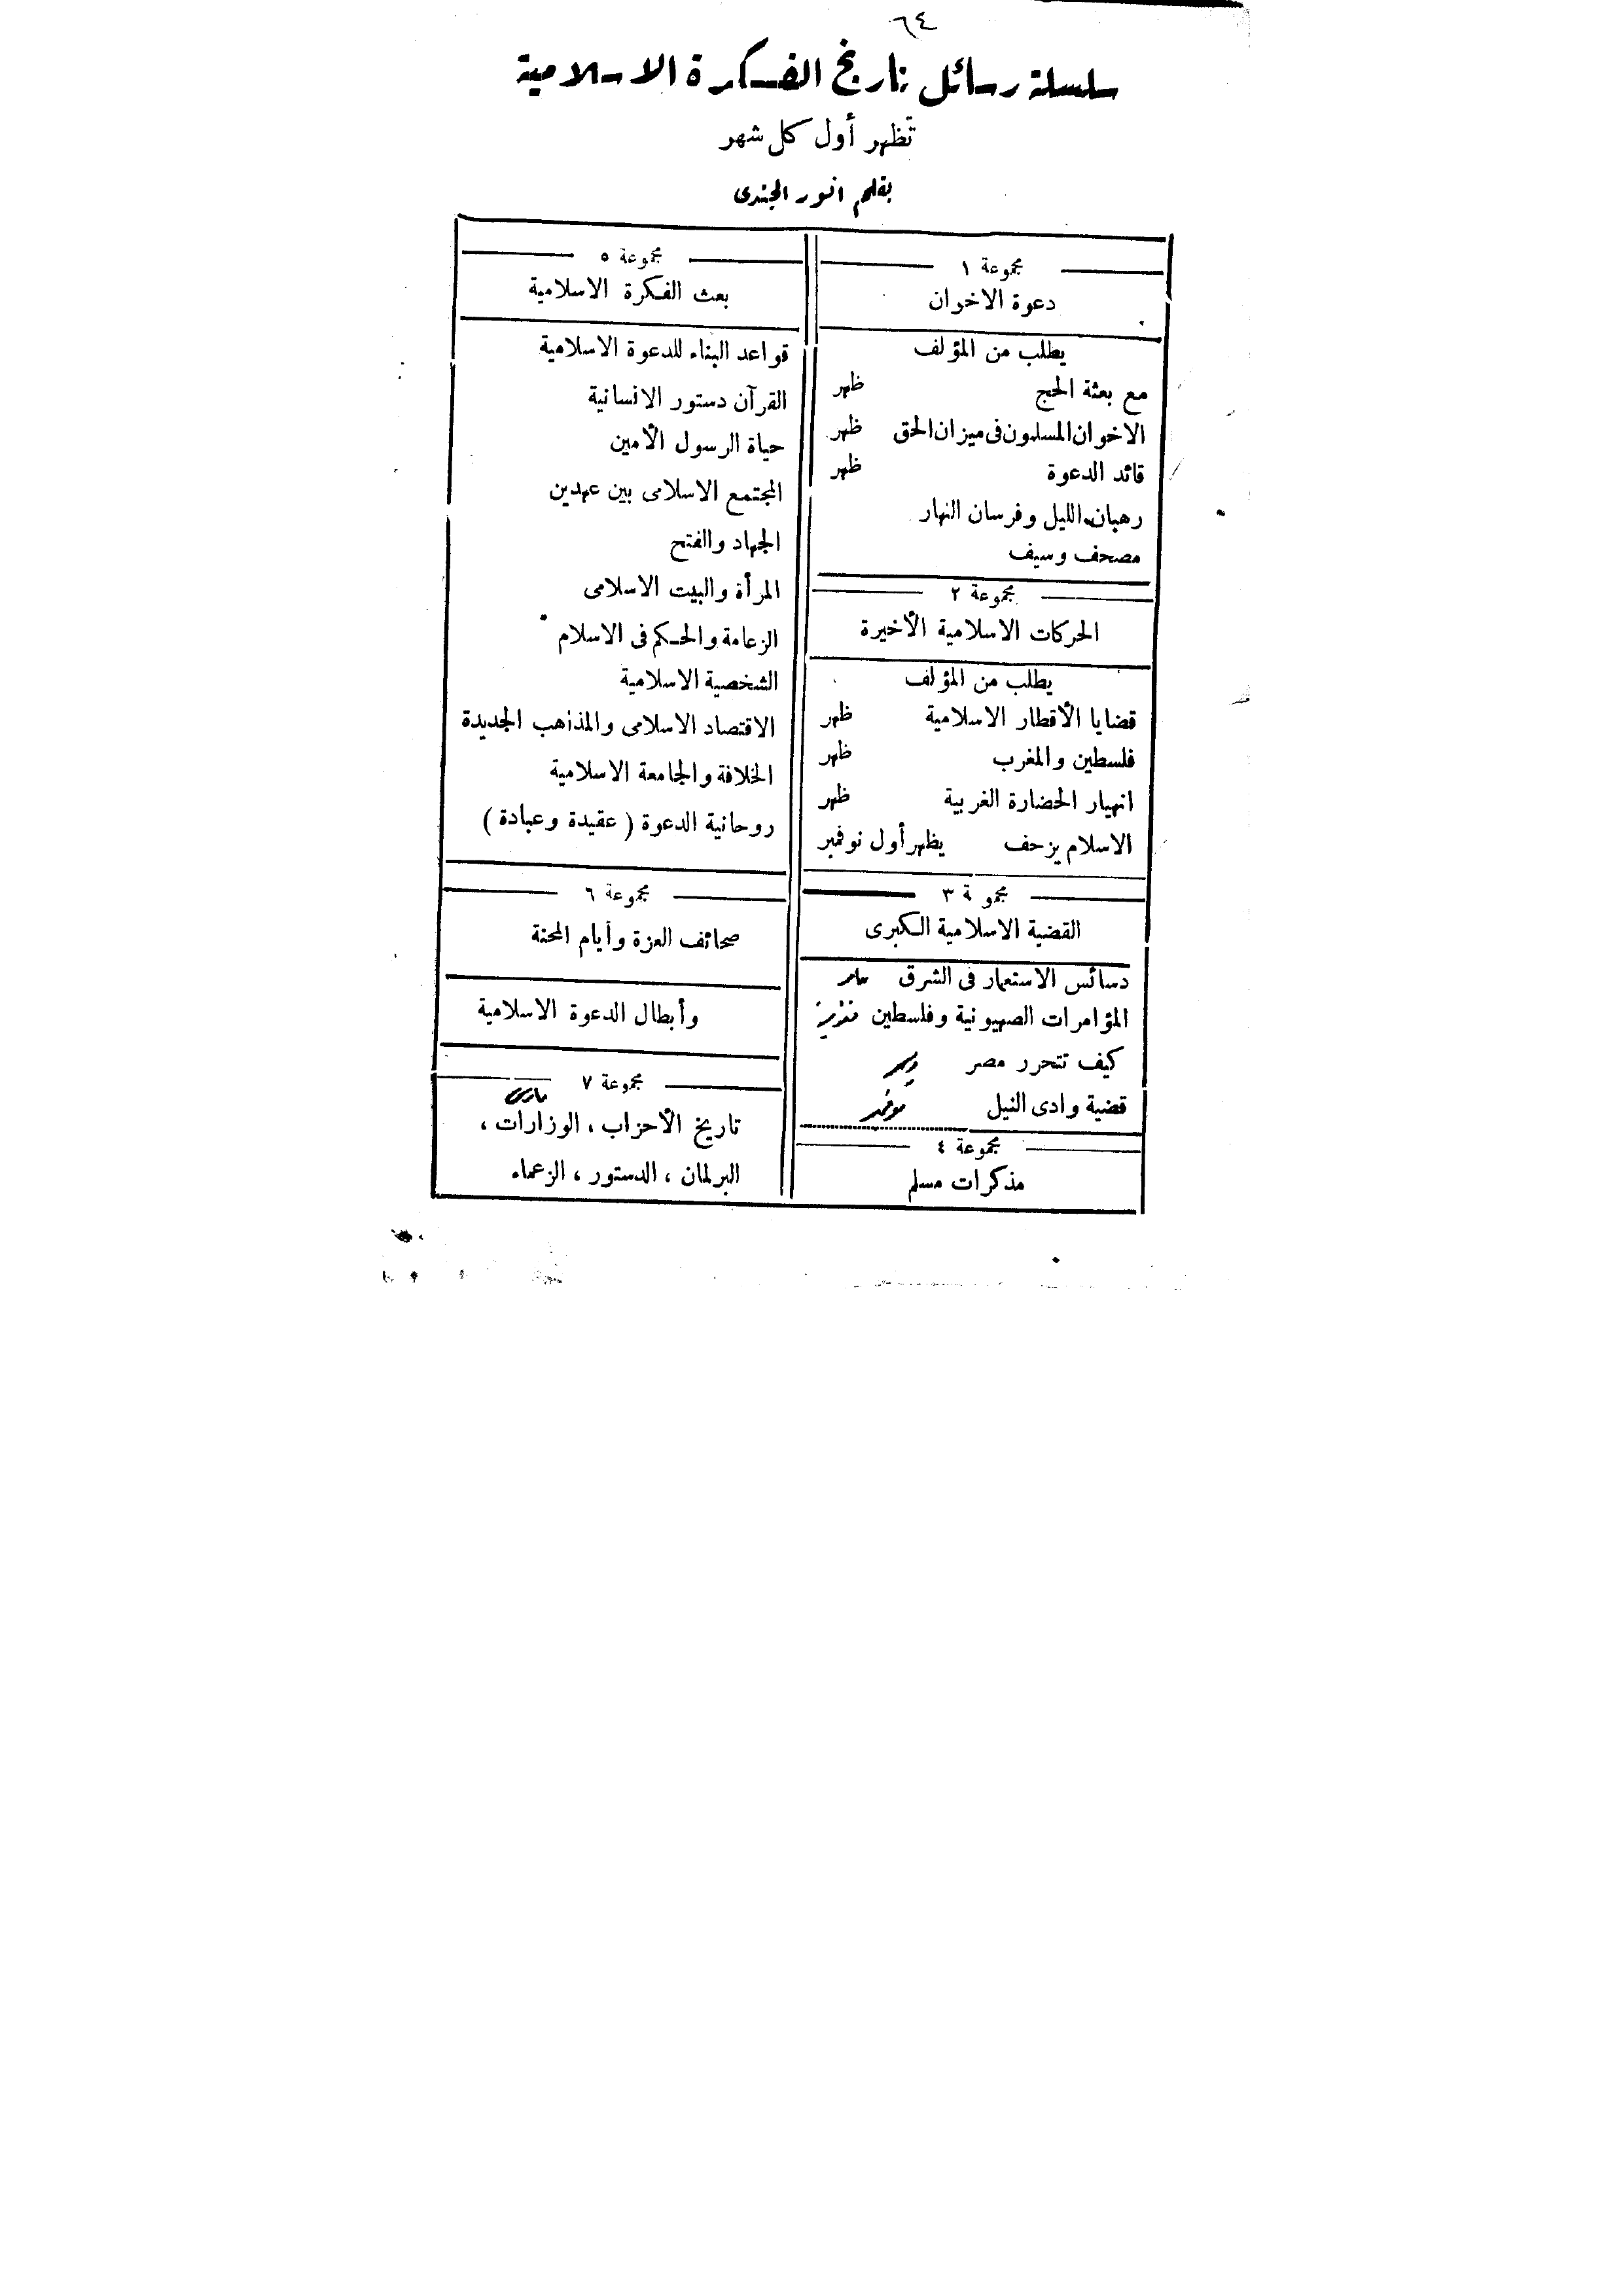 ٦٤
سلسلة رسائل تاريخ الفكرة الاسلامية
تظهر أول كل شهر
بقلم انور الجندى
مجموعة ١
دعوة الاخوان
يطلب من المؤلف
مع بعثة الحج ظهر
الاخوان المسلمون فى ميزان الحق ظهر
قائد الدعوة ظهر
رهبان الليل وفرسان النهار
مصحف وسيف
مجموعة ٢
الحركات الاسلامية الأخيرة
يطلب من المؤلف
قضايا الأقطار الاسلامية ظهر
فلسطين والمغرب ظهر
انهيار الحضارة الغربية ظهر
الاسلام يزحف يظهر أول نوفمبر
مجمو ة ٣
القضية الاسلامية الكبرى
دسائس الاستعمار فى الشرق
المؤامرات الصهيونية وفلسطين
كيف تتحرر مصر
قضية وادى النيل
مجموعة ٤
مذكرات مسلم
مجموعة ٥
بعث الفكرة الاسلامية
قواعد البناء للدعوة الاسلامية
القرآن دستور الانسانية
حياة الرسول الأمين
المجتمع الاسلامى بين عهدين
الجهاد والفتح
المرأة والبيت الاسلامى
الزعامة والحكم فى الاسلام
الشخصية الاسلامية
الاقتصاد الاسلامى والمذاهب الجديدة
الخلافة والجامعة الاسلامية
روحانية الدعوة ( عقيدة وعبادة )
مجموعة ٦
صحائف العزة وأيام المحنة
وأبطال الدعوة الاسلامية
مجموعة ٧
تاريخ الأحزاب ، الوزارات ،
البرلمان ، الدستور ، الزعماء